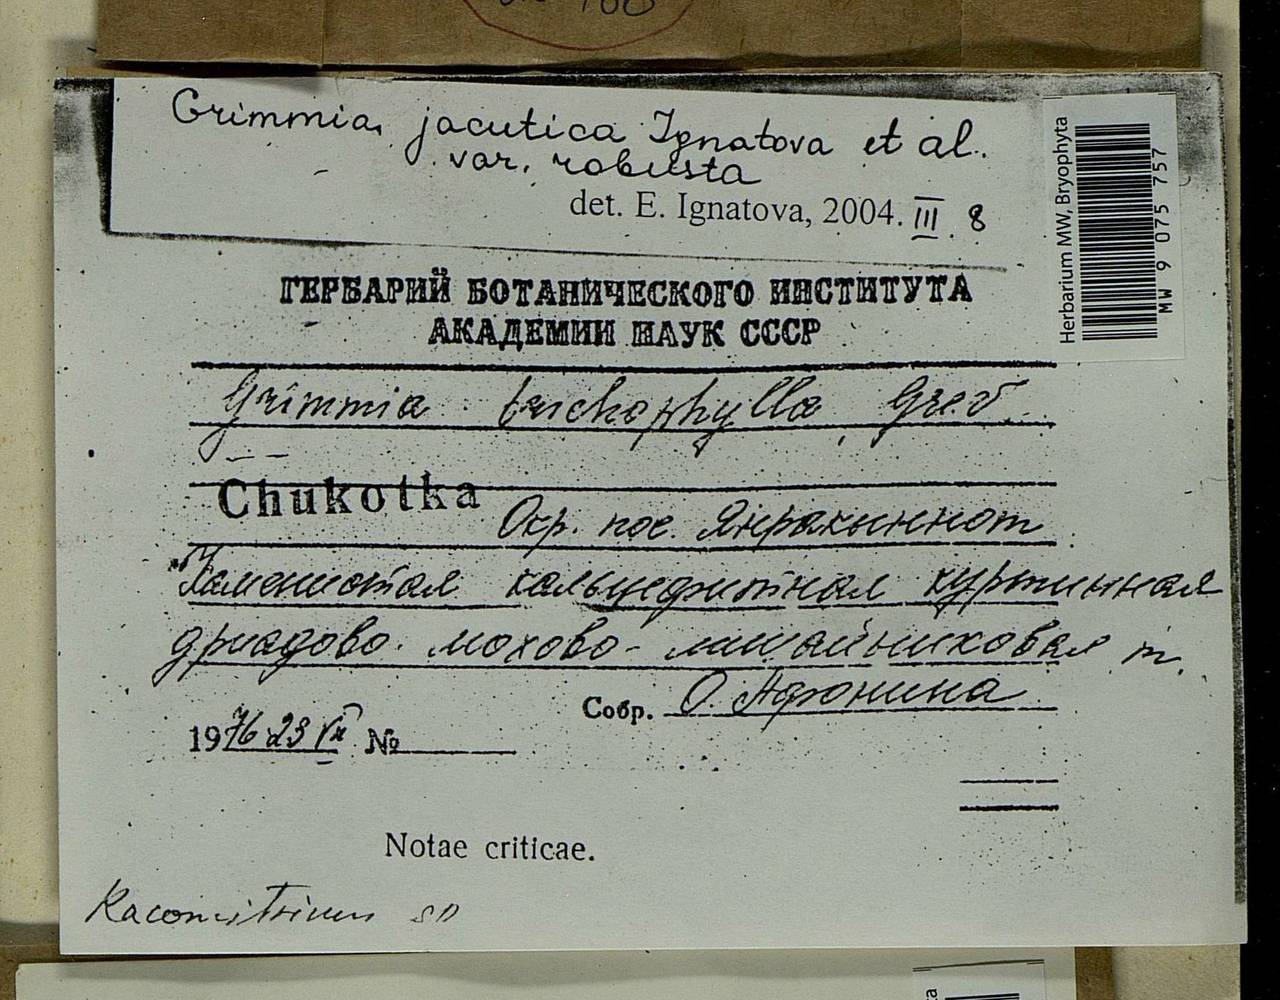 Grimmia jacutica Ignatova et al.
var. robusta
det. E. Ignatova, 2004. III. 8
Herbarium MW, Bryophyta
MW 9 075 757
ГЕРБАРИЙ БОТАНИЧЕСКОГО ИНСТИТУТА
АКАДЕМИИ НАУК СССР
Grimmia trichophylla Grev.
Chukotka Окр. пос. Янракыннот
Каменистая кальцефитная куртинная
дриадово-мохово-лишайниковая т.
Собр. О. Афонина
1976 23 VII №
Notae criticae.
Racomitrium sp